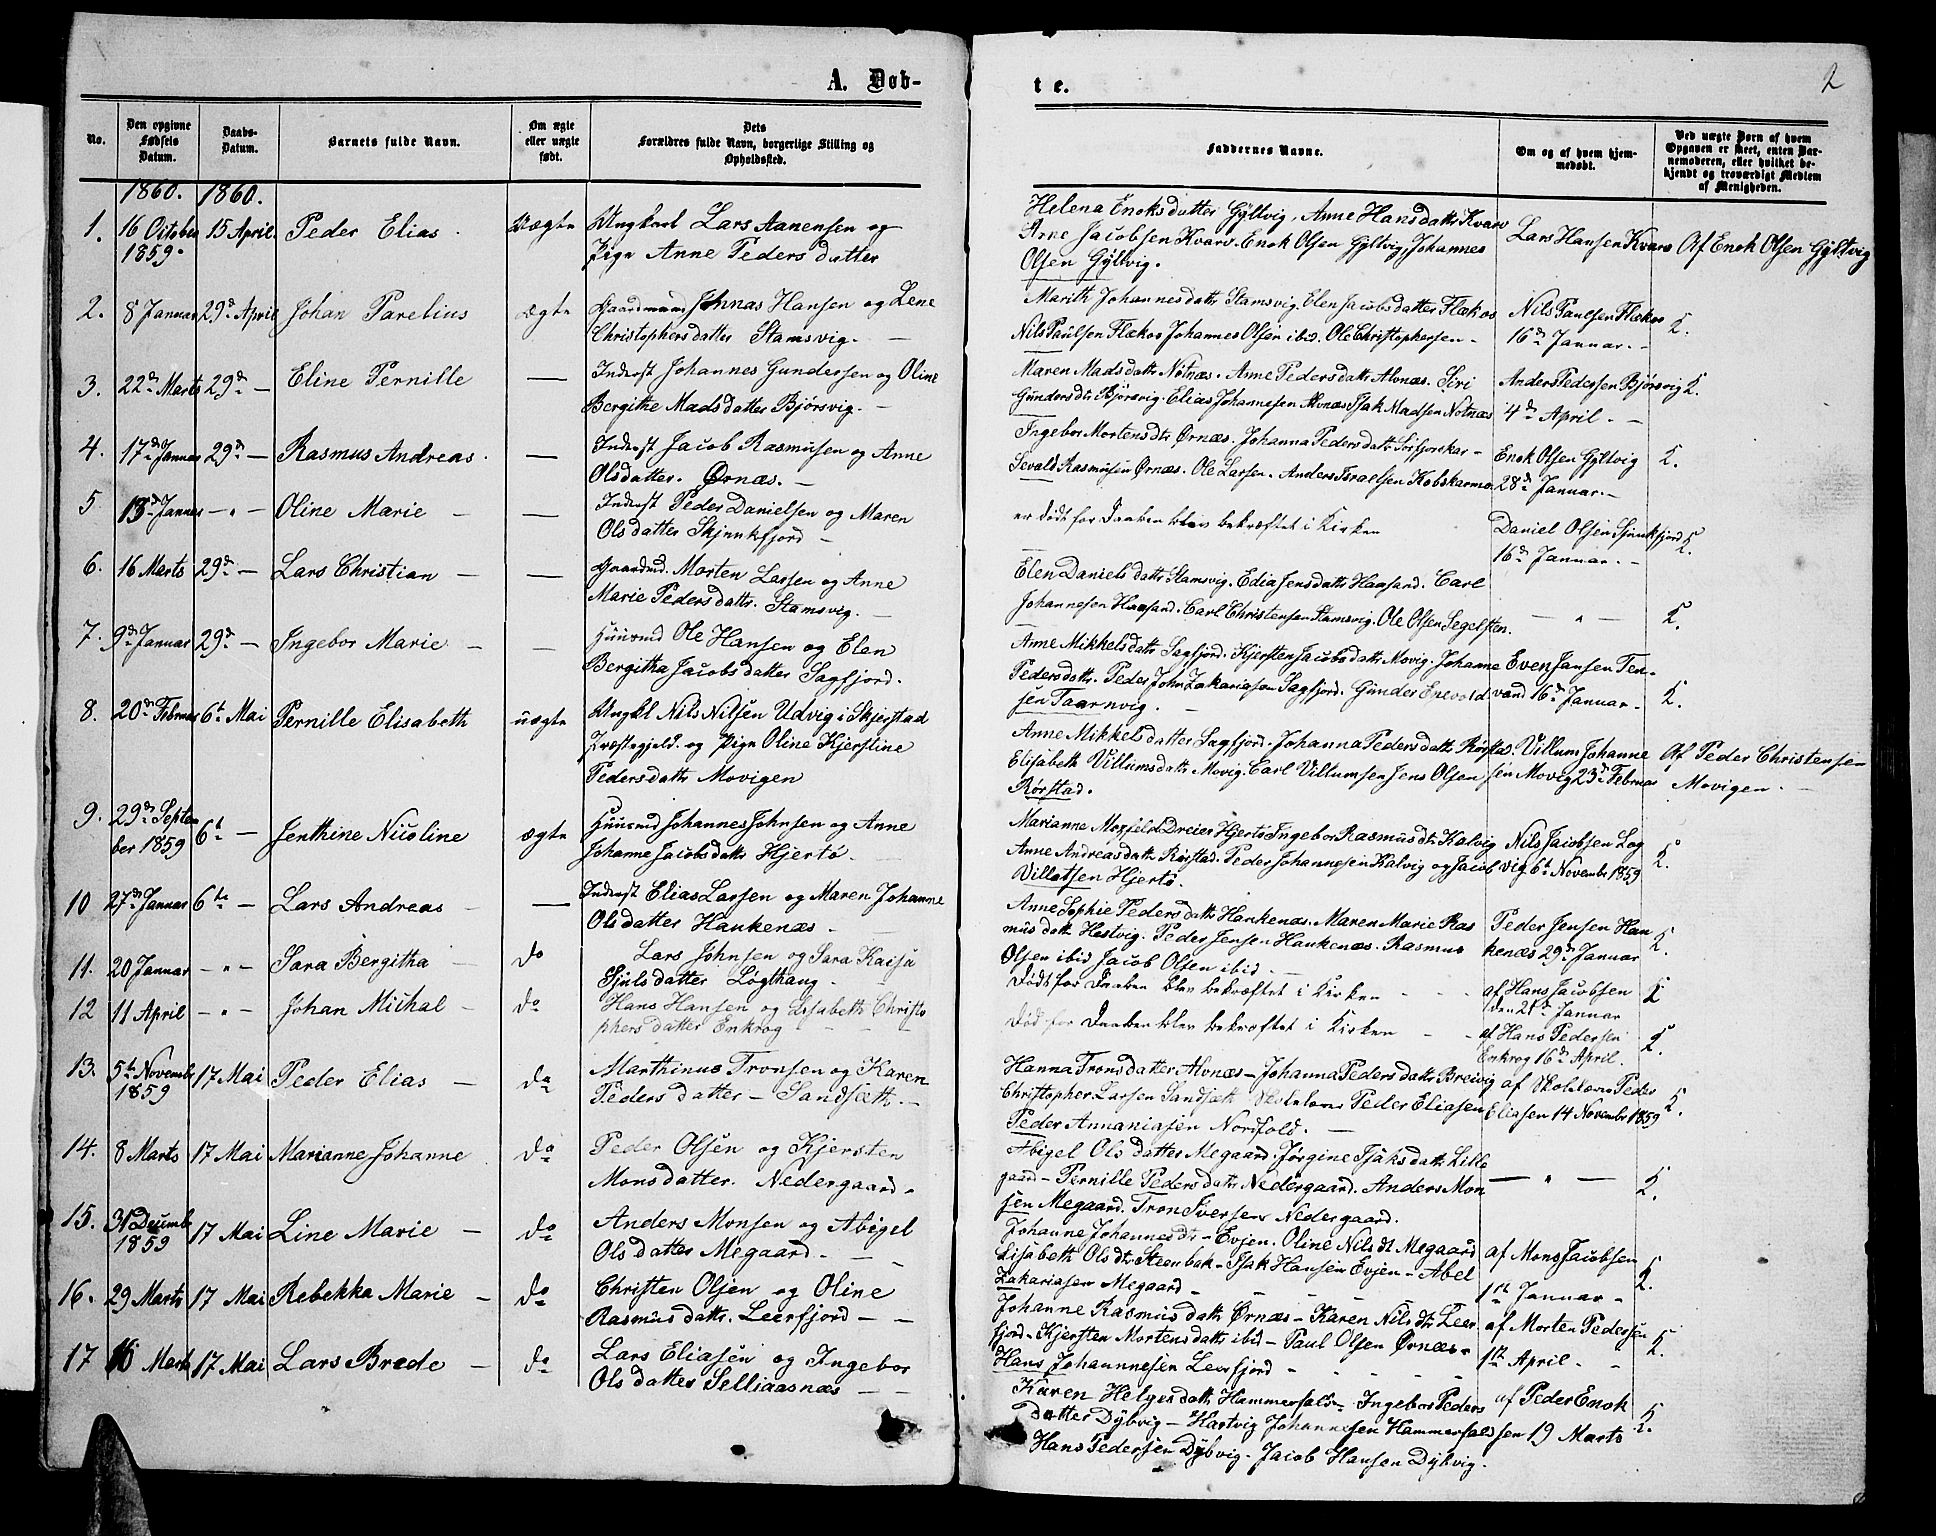 A. Døb-
t e.
2
No.
Den opgivne Fødsels Datum.
Daabs-Datum.
Barnets fulde Navn.
Om ægte eller uægte født.
Dets Forældres fulde Navn, borgerlige Stilling og Opholdssted.
Faddernes Navne.
Om og af hvem hjemmedøbt.
Ved uægte Børn af hvem Opgaven er skeet, enten Barnemoderen, eller hvilket bekjendt og troværdigt Medlem af Menigheden.
1860. 1860.
1. 16 October 15 April. Peder Elias. Uægte Ungkarl Lars Aanensen og
1859. Pige Anne Pedersdatter
Helena Enoksdatter Gyltvig, Anne Hansdattr Kvarv
Arne Jacobsen Kvarv. Enok Olsen Gyltvig, Johannes
Olsen Gyltvig.
Lars Hansen Kvarv
Af Enok Olsen Gyltvig
2. 8 Januar 29de April Johan Parelius ægte Gaardmand Jonas Hansen og Lene
Christophersdatter Stamsvig.
Marith Johannesdattr Stamsvig. Elen Jacobsdatter Flækos
Nils Paulsen Flækos Johannes Olsen ibid. Ole Christophersen
Nils Paulsen Flækos
16de Januar.
3. 22de Marts 29de — Eline Pernille — Inderst Johannes Gundersen og Oline
Bergithe Madsdatter Bjørsvig.
Maren Madsdattr Nøtnæs. Anne Pedersdattr Alvnæs. Siri
Gundersdtr Bjørsvig. Elias Johannesen Alvnæs Isak Madsen Nøtnæs
Anders Pedersen Bjørsvig
4de April.
4. 17de Januar 29de — Rasmus Andreas. — Inderst Jacob Rasmusen og Anne
Olsdatter. Ørnæs.
Ingebor Mortensdtr Ørnæs. Johanna Pedersdattr
Sevald Rasmusen Ørnæs. Ole Larsen. Anders Israelsen
Enok Olsen Gyltvig
28de Januar.
5 13de Januar — " — Oline Marie — Inderst Peder Danielsen og Maren
Olsdatter Skjunkfjord
er død for Daaben blev bekræftet i Kirken
Daniel Olsen Sjunkfjord
16de Januar.
6. 16 Marts 29de — Lars Christian — Gaardmd. Morten Larsen og Anne
Marie Pedersdattr. Stamsvig.
Elen Danielsdattr Stamsvig. Edia Jensdattr Haasand. Carl
Johannesen Haasand. Carl Christensen Stamsvig. Ole Olsen Segelsten.
— " —
7. 9de Januar 29de — Ingebor Marie — Huusmd Ole Hansen og Elen
Bergitha Jacobsdatter Sagfjord.
Anne Mikkelsdattr Sagfjord. Kjersten Jacobsdattr Movig. Johanne
Pedersdattr. Peder John Zakariasen Sagfjord. Gunder Enevold
sen Taarnvig.
Even Jansen Ten-
vand 16de Januar.
8. 20de Februar 6te Mai Pernille Elisabeth uægte Ungkl Nils Nilsen Udvig i Skjerstad
Præstegjeld. og Pige Oline Kjerstine
Pedersdattr Movigen
Anne Mikkelsdatter Sagfjord. Johanna Pedersdattr Rørstad.
Elisabeth Villumsdattr Movig. Carl Villumsen Jens Olsen
Rørstad.
Villum Johanne
sen Movig 23de Februar
Af Peder Christensen
Movigen.
9. 29de Septem
ber 1859 6te — Jenthine Nicoline ægte Huusmd Johannes Johnsen og Anne
Johanne Jacobsdattr Hjertø.
Marianne Moxfeldt Dreier Hjertø Ingebor Rasmusdtr Kalvig
Anne Andreasdattr Rørstad. Peder Johannesen Kalvig og Jacob
Villatsen Hjertø.
Nils Jacobsen Log
vig 6te Novembr 1859
10 27de Januar 6te — Lars Andreas — Inderst Elias Larsen og Maren Johanne
Olsdatter Haukenæs.
Anne Sophie Pedersdattr Haukenæs. Maren Marie Ras
musdattr Hestvig. Peder Jensen Haukenæs. Rasmus
Olsen ibid Jacob Olsen ibid.
Peder Jensen Hau
kenæs 29de Januar
11. 20 Januar — " — Sara Bergitha do Lars Johnsen og Sara Kaisa
Sjulsdatter Løgthaug
Død for Daaben blev bekræftet i Kirken
af Hans Jacobsen
den 21de Januar
12 11 April — " — Johan Michal do Hans Hansen og Lisabeth Christo
phersdatter Enkrog
Død for Daaben blev bekræftet i Kirken
af Hans Pedersen
Enkrog 16de April.
13. 5te Novembr 17 Mai Peder Elias do Marthinus Tronsen og Karen
1859 Pedersdatter — Sandsæth.
Hanna Tronsdatter Alvnæs — Johanna Pedersdattr Breivig
Christopher Larsen Sandsæth Skolelærer Peder Eliasen
Peder Annaniasen Nordfold.
af Skolelærer Peder
Eliasen 14 Novembr 1859
14. 8 Marts 17 Mai Marianne Johanne do Peder Olsen og Kjersten
Monsdatter. Nedergaard.
Abigel Olsdatter Megaard. Jørgine Isaksdattr Lille
gaard — Pernille Pedersdattr Nedergaard. Anders Mon
sen Megaard. Tron Iversen Nedergaard.
— " —
15. 31 Decembr
1859 17 Mai Line Marie — do Anders Monsen og Abigel
Olsdatter Megaard.
Johanne Johannesdtr — Evjen. Oline Nilsdtr Megaard
Lisabeth Olsdtr Steenbak — Isak Hansen Evjen — Abel
Zakariasen Megaard
af Mons Jacobsen
1ste Januar
16. 29 Marts 17 Mai Rebekka Marie — do Christen Olsen og Oline
Rasmusdattr. Leerfjord
Johanne Rasmusdattr Ørnæs — Karen Nilsdtr Leer
fjord — Kjersten Mortensdattr ibid — Paul Olsen Ørnæs
Hans Johannesen Leerfjord
af Morten Pedersen
1ste April.
17 16 Marts 17 Mai Lars Brede — do Lars Eliasen og Ingebor
Olsdatter Selliaasnæs
Karen Helgesdattr Hammerfald — Ingebor Peders
datter Dybvig — Hartvig Johannesen Hammerfald
Hans Pedersen Dybvig. Jacob Hansen Dybvig.
af Peder Enok
sen 19 Marts